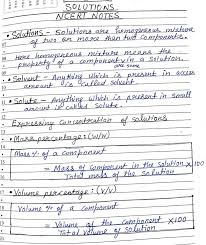 SOLUTIONS
NCERT NOTES
• Solutions - Solutions are homogeneous mixture
of two or more than two components.
Here homogeneous mixture means the
property of a component in a solution.
are same
• Solvent - Anything which is present in excess
amount is called solvent
• Solute - Anything which is present in small
amount is called solute.
Expressing Concentration of Solutions
• Mass percentage: (W/W)
Mass % of a component
= Mass of component in the solution X 100
Total mass of the solution
• Volume percentage: (V/V)
Volume % of a component
= Volume of the component X100
Total volume of solution